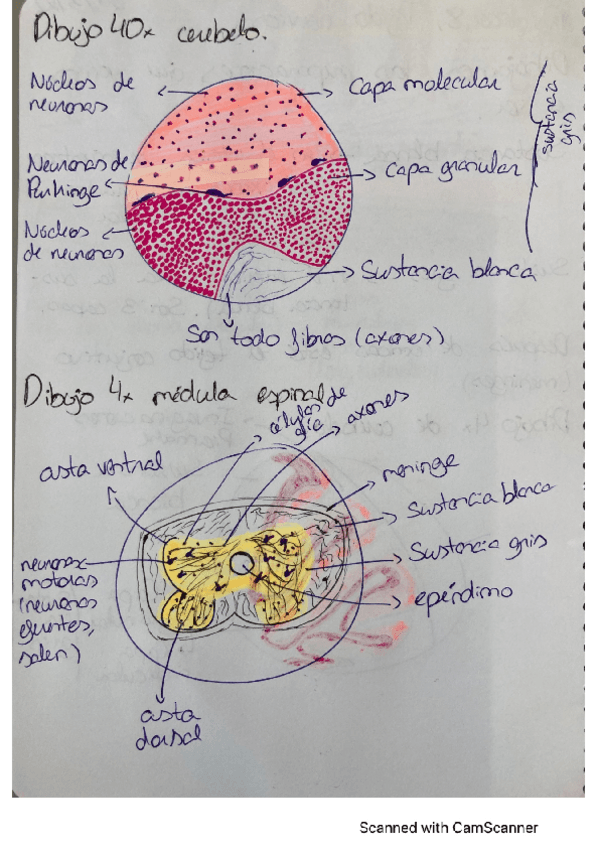 Dibujo 40x cerebelo.
Núcleos de
neuronas
Capa molecular
Neuronas de
Purkinge
Capa granular
sustancia
gris
Núcleos
de neuronas
Sustancia blanca
Son todo fibras (axones)
Dibujo 4x médula espinal
células de
glía
axones
asta ventral
meninge
Sustancia blanca
neuronas
motoras
(neuronas
efrentes,
salen)
Sustancia gris
epéndimo
asta
dorsal
Scanned with CamScanner